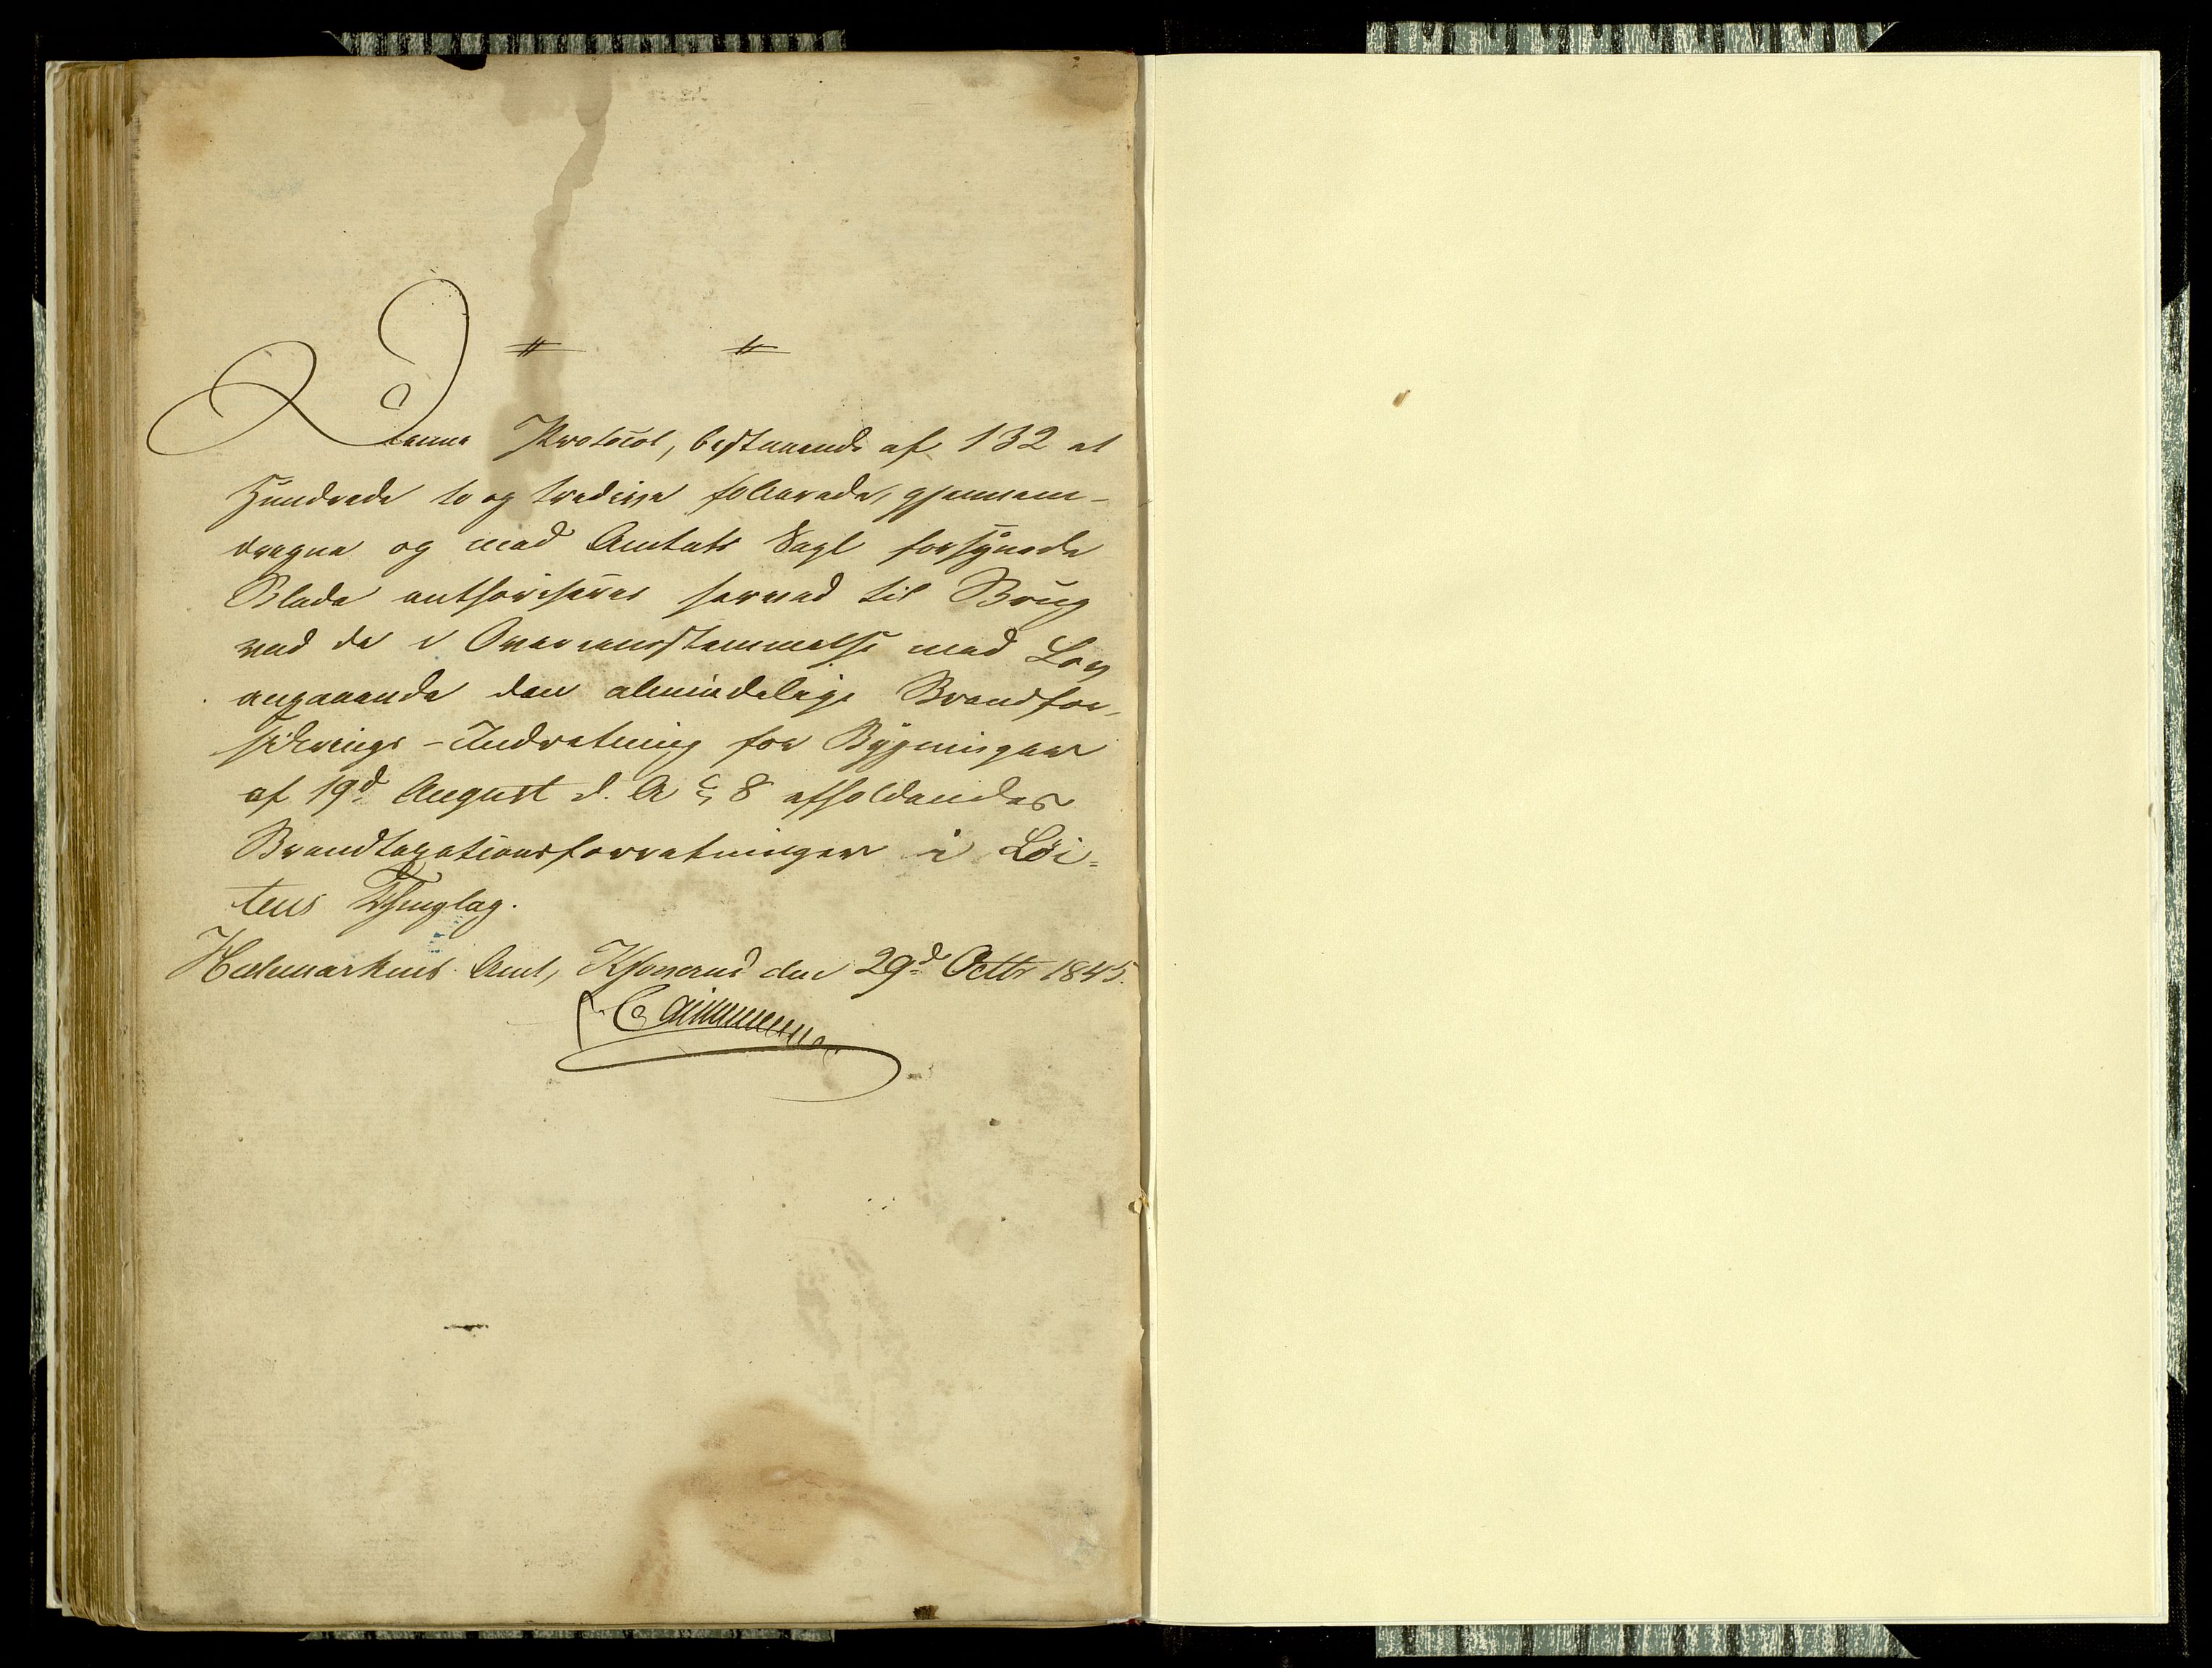 Denne Protocol, bestaaende af 132 et
Hundrede to og tredive folierede, gjennem-
dragne og med Amtets Segl forsynede
Blade authoriseres herved til Brug
ved de i Overeensstemmelse med Lov
angaaende den almindelige Brandfor-
sikrings-Indretning for Bygninger
af 19d August d. A § 8 afholdendes
Brandtaxationsforretninger i Löi-
tens Thinglag.
Hedemarkens Amt, den 29d Octbr 1845.